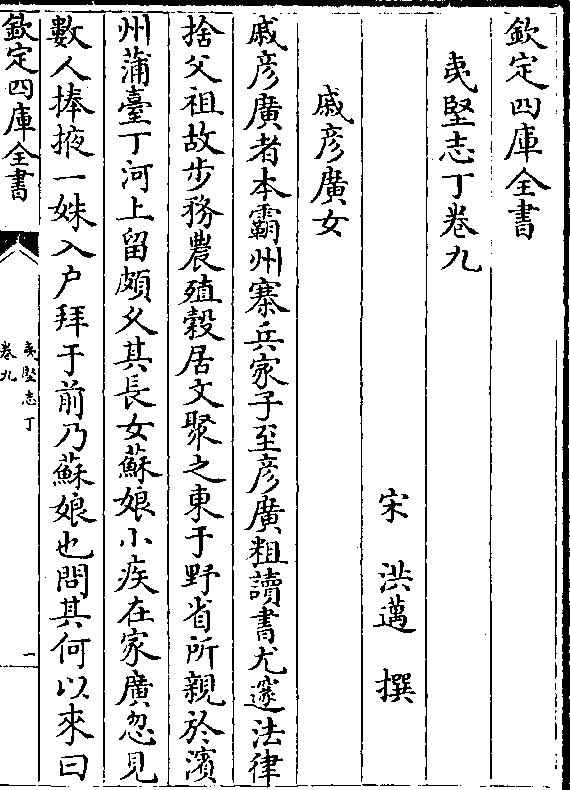 欽定四庫全書
夷堅志丁卷九
宋 洪邁 撰
戚彦廣女
戚彦廣者本霸州寨兵家子至彦廣粗讀書尤邃法律
捨父祖故步務農殖穀居文聚之東于野省所親於濱
州蒲臺丁河上留頗久其長女蘇娘小疾在家廣忽見
數人捧掖一姝入户拜于前乃蘇娘也問其何以來曰
欽定四庫全書
夷堅志丁
卷九
一